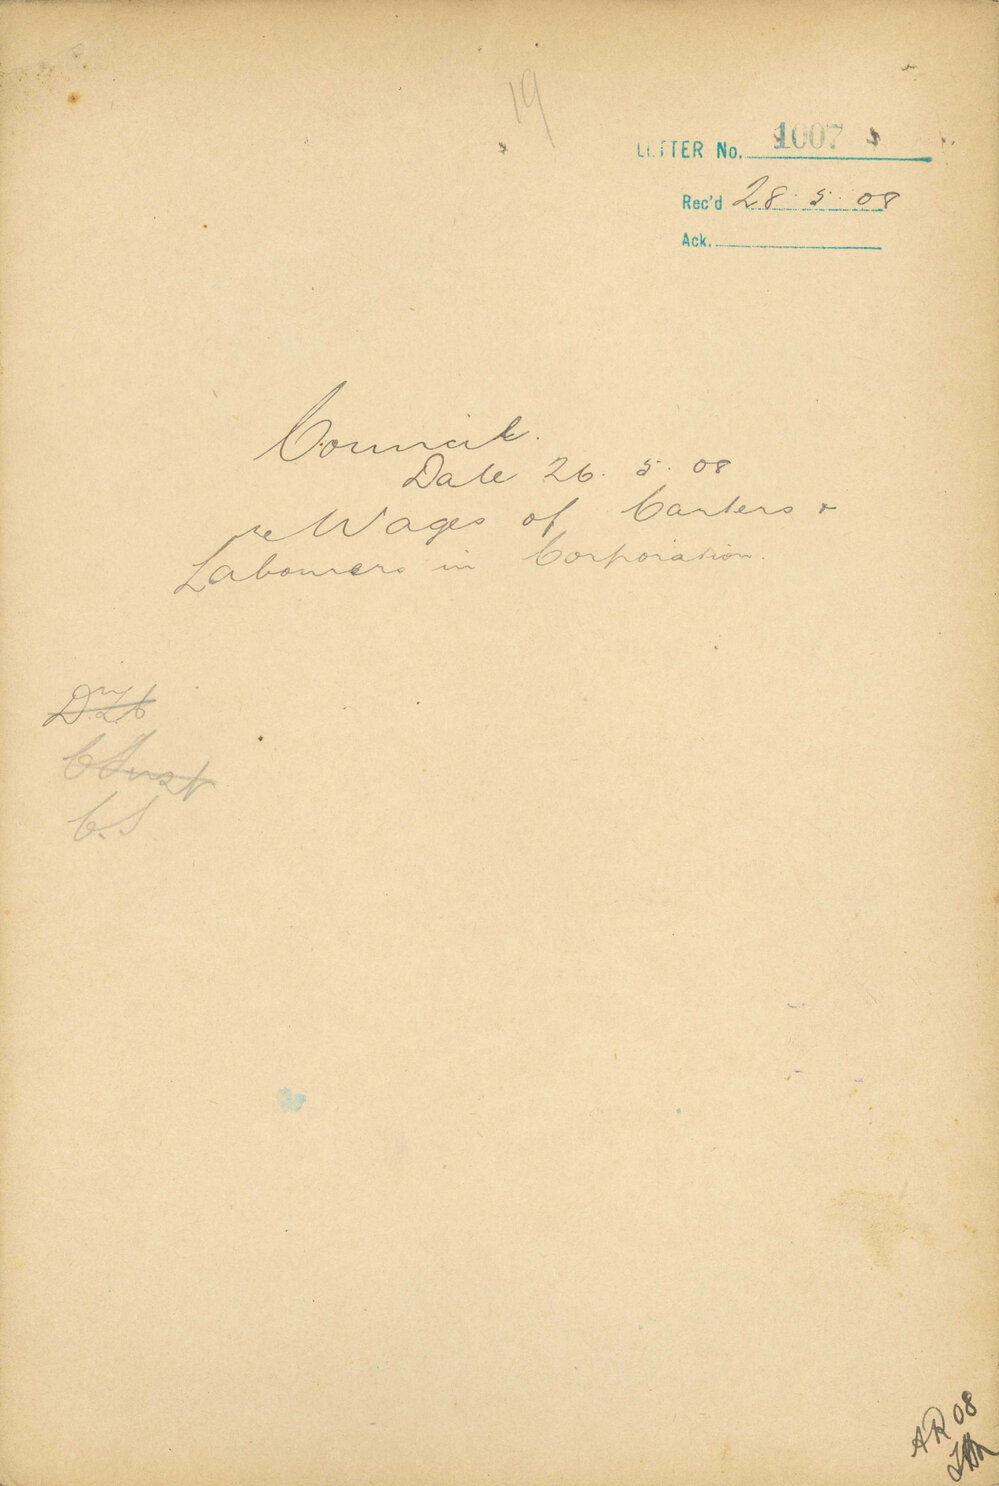 19
LETTER No. 1007
Rec'd 28. 5. 08
Ack.
Council.
Date 26. 5. 08
re Wages of Carters &
Labourers in Corporation.
C.S.
AR 08